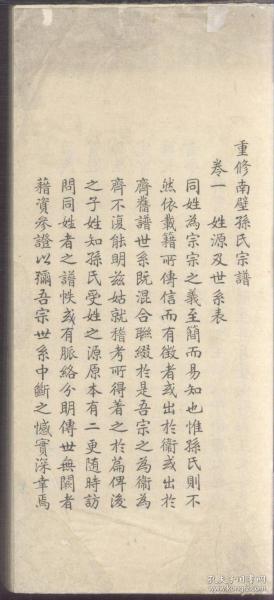 重修南壁孫氏宗譜
卷一 姓源及世系表
同姓為宗宗之義至簡而易知也惟孫氏則不
然依載籍所傳信而有徵者或出於衛或出於
齊舊譜世系既混合聯綴於是吾宗之為衛為
齊不復能明茲姑就稽考所得著之於篇俾後
之子姓知孫氏受姓之源原本有二更随時訪
問同姓者之譜帙或有脈絡分明傳世無闕者
藉資參證以彌吾宗世系中斷之憾實深幸焉
孔夫子旧书网